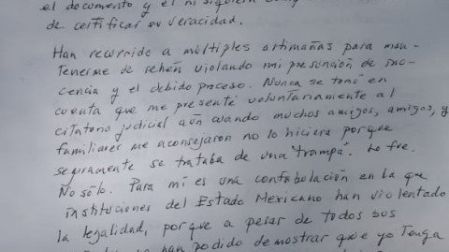 el documento y el ni siquiera
de certificar su veracidad.
Han recurrido a múltiples artimañas para man-
tenerme de rehén violando mi presunción de ino-
cencia y el debido proceso. Nunca se tomó en
cuenta que me presenté voluntariamente al
citatorio judicial aún cuando muchos amigos, amigas, y
familiares me aconsejaron no lo hiciera porque
seguramente se trataba de una "trampa". Lo fue.
No sólo. Para mí es una confabulación en la que
instituciones del Estado Mexicano han violentado
la legalidad, porque a pesar de todos sus
han podido demostrar que yo tenga